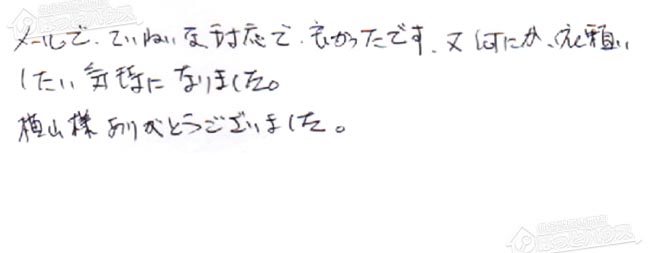 メールで、ていねいな対応で、良かったです。又何にか、お願い
したい気持になりました。
植山様ありがとうございました。